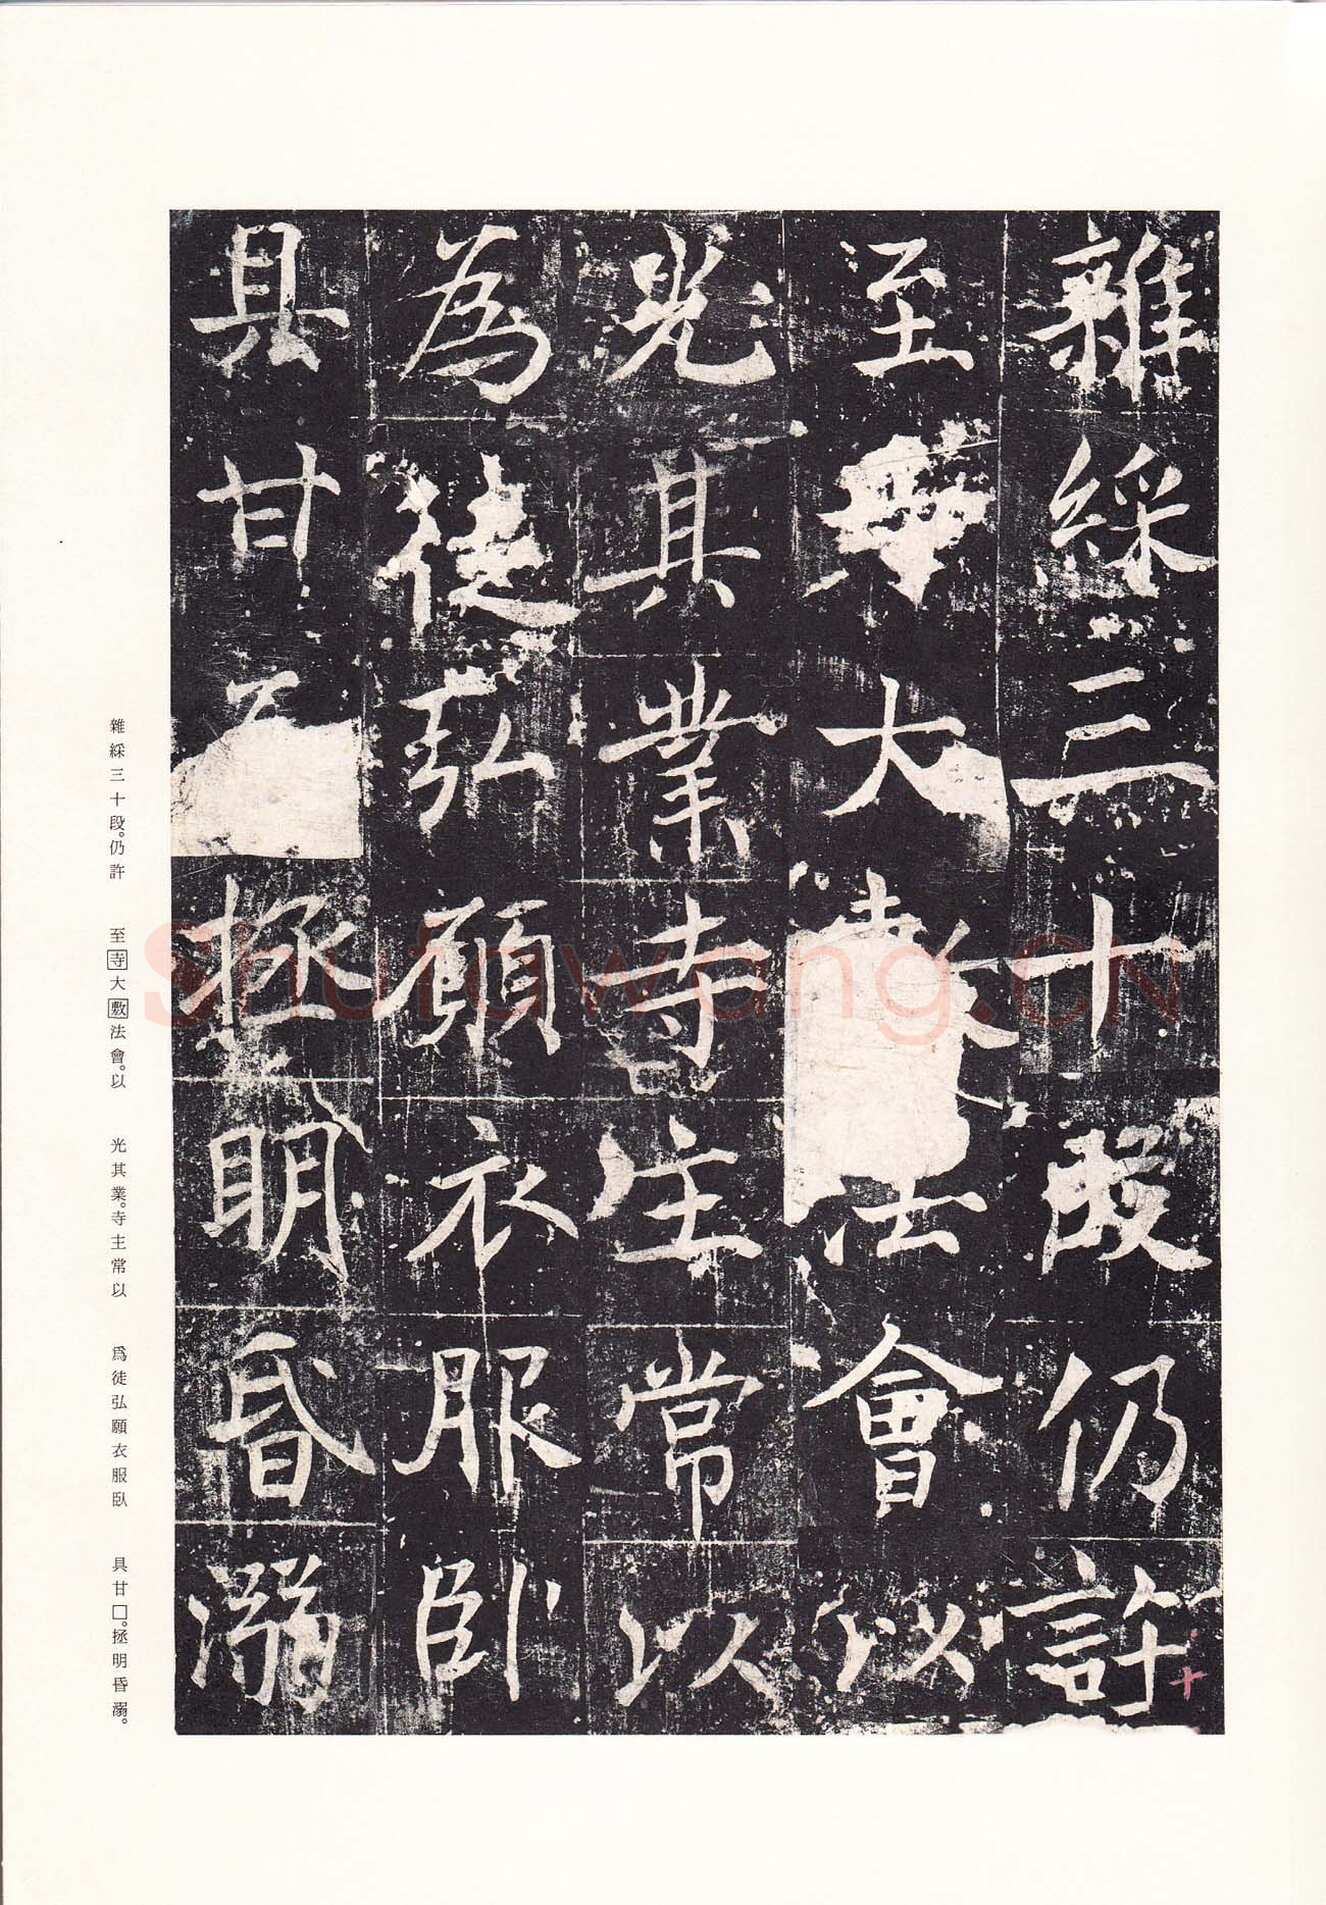 雜綵三十段仍許
至大法會以
光其業寺主常以
為徒弘願衣服臥
具甘拯明昏溺
雜綵三十段。仍許　至寺大敷法會。以　光其業。寺主常以　爲徒弘願衣服臥　具甘□。拯明昏溺。
Shufawang.CN